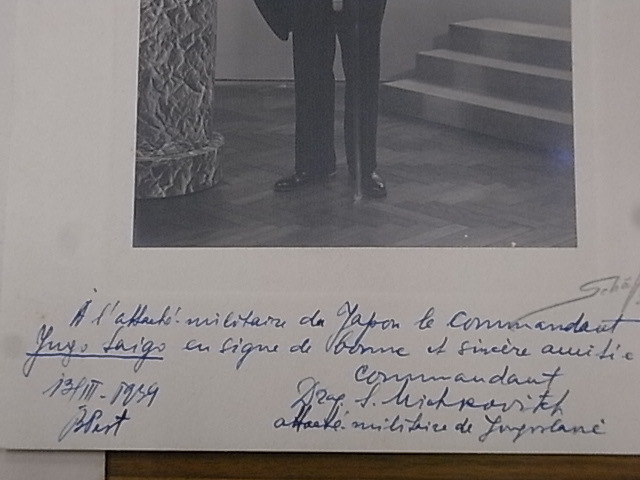 À l'attaché-militaire du Japon le Commandant
Jugo Saigo en signe de bonne et sincère amitié
Commandant
13/III-1939
Drag. S. Michkovitch
BPest
attaché-militaire de Jugoslavie